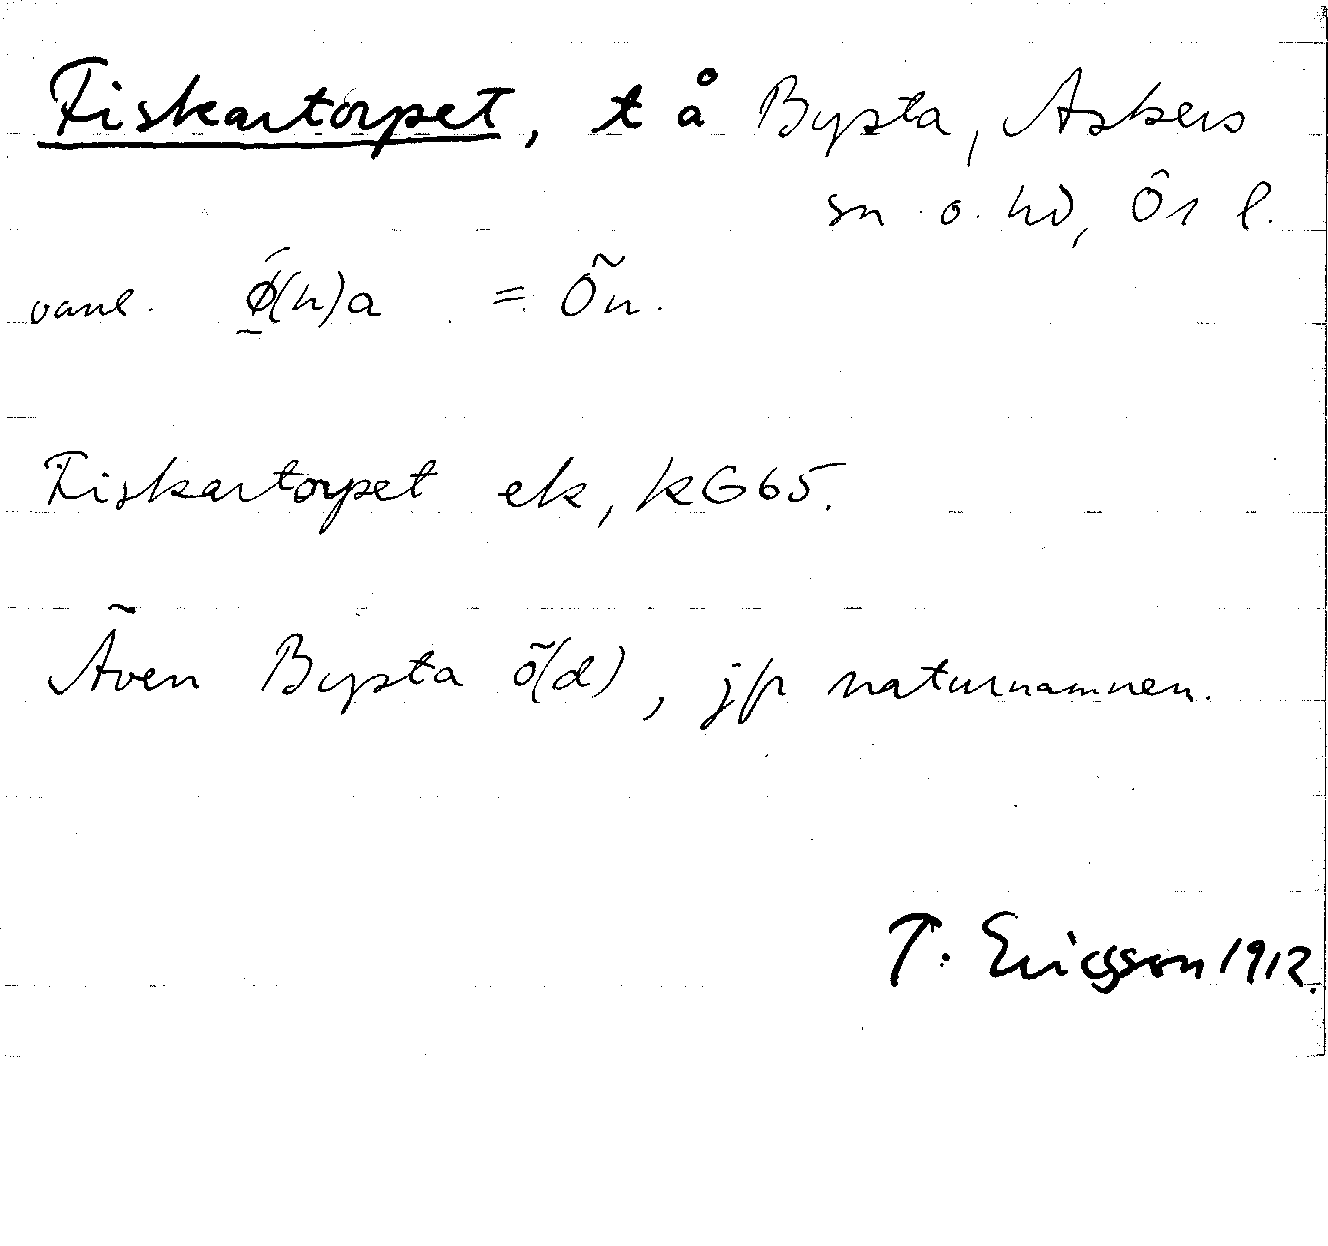 Fiskartorpet, t å Bysta, Askers
sn o. hd, Ör l.
vanl. ǿ̱(n)a = Ön.
Fiskartorpet ek, KG65.
Även Bysta ö(d), jfr naturnamnen.
T. Ericsson 1912.